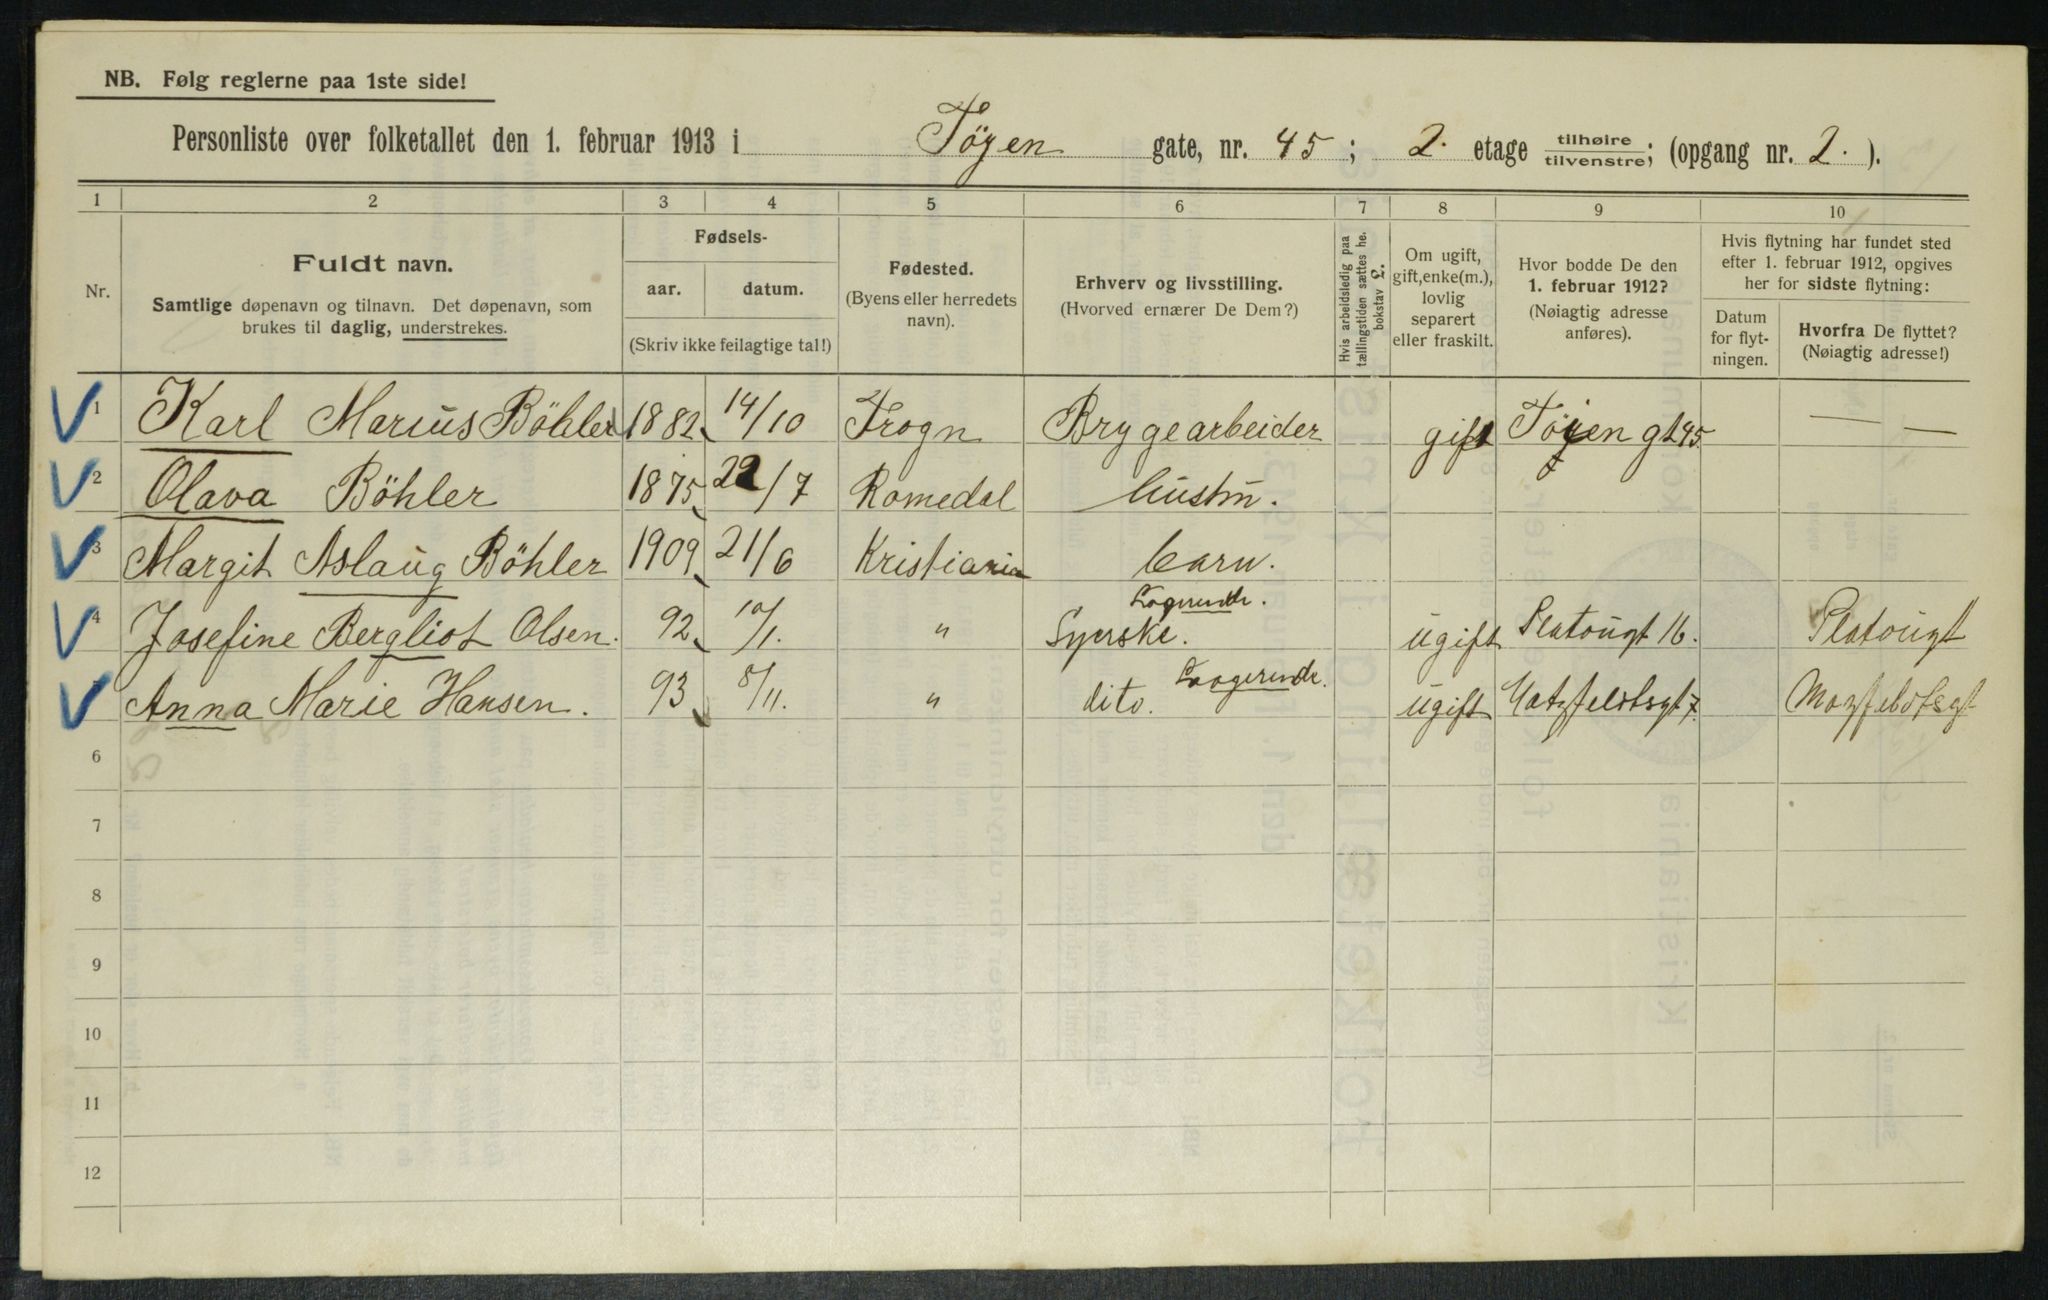 NB. Følg reglerne paa 1ste side!
Personliste over folketallet den 1. februar 1913 i Töyen gate, nr. 45; 2. etage tilhøire/tilvenstre; (opgang nr. 2.).
1 2 3 4 5 6 7 8 9 10
Nr.
Fuldt navn.
Samtlige døpenavn og tilnavn. Det døpenavn, som
brukes til daglig, understrekes.
Fødsels-
aar. datum.
(Skriv ikke feilagtige tal!)
Fødested.
(Byens eller herredets
navn).
Erhverv og livsstilling.
(Hvorved ernærer De Dem?)
Hvis arbeidsledig paa
tællingstiden sættes he.
bokstav L.
Om ugift,
gift, enke(m.),
lovlig
separert
eller fraskilt.
Hvor bodde De den
1. februar 1912?
(Nøiagtig adresse
anføres).
Hvis flytning har fundet sted
efter 1. februar 1912, opgives
her for sidste flytning:
Datum
for flyt-
ningen.
Hvorfra De flyttet?
(Nøiagtig adresse!)
1 Karl Marius Böhler 1882 14/10 Frogn Bryggearbeider gift Töyen gt 45 — —
2 Olava Böhler 1875 22/7 Romedal hustru.
3 Margit Aslaug Böhler 1909 21/6 Kristiania barn.
Logerende.
4 Josefine Bergliot Olsen. 92 10/1. " Syerske. ugift Platougt 16. Platougt
Loogerende.
5 Anna Marie Hansen. 93 8/11. " dito. ugift Hatzfeldtsgt 7. Hazfeldtsgt
6
7
8
9
10
11
12